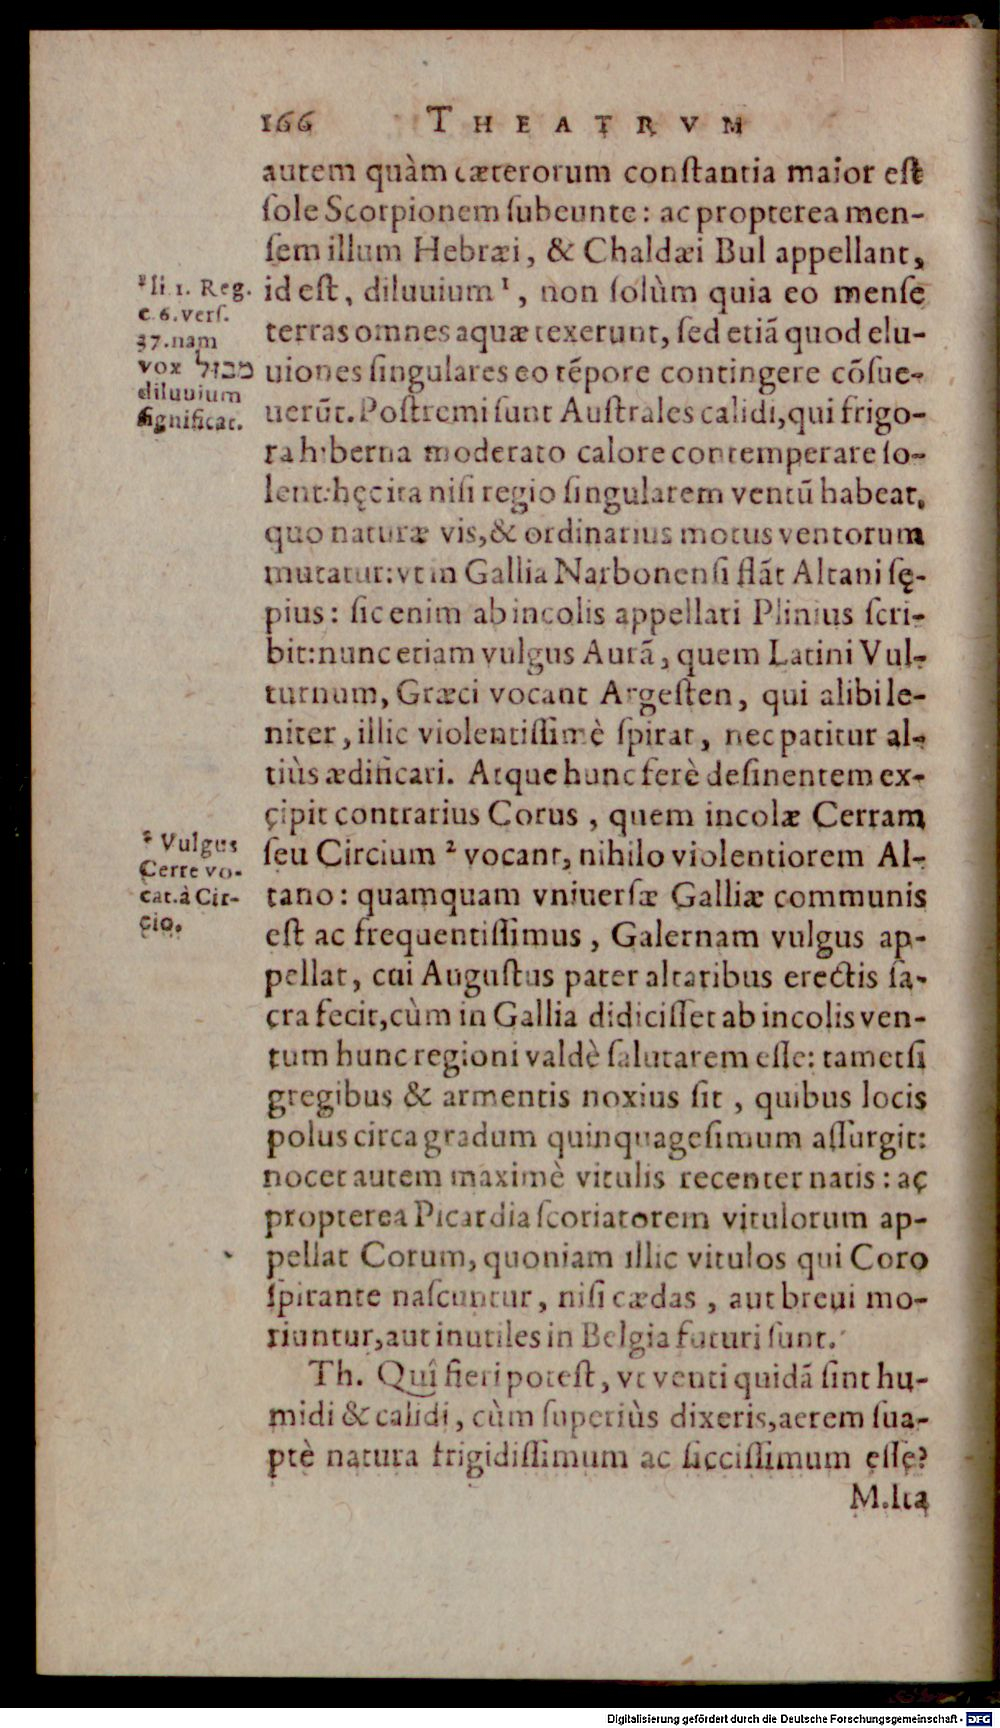 166 THEATRVM
autem quàm cæterorum conſtantia maior eſt
ſole Scorpionem ſubeunte: ac propterea men-
ſem illum Hebræi, & Chaldæi Bul appellant,
id eſt, diluuium ¹, non ſolùm quia eo menſe
terras omnes aquæ texerunt, ſed etiã quod elu-
uiones ſingulares eo tẽpore contingere cõſue-
uerũt. Poſtremi ſunt Auſtrales calidi, qui frigo-
ra hiberna moderato calore contemperare ſo-
lent: hęc ita niſi regio ſingularem ventũ habeat,
quo naturæ vis, & ordinarius motus ventorum
mutatur: vt in Gallia Narbonenſi flãt Altani ſę-
pius: ſic enim ab incolis appellati Plinius ſcri-
bit: nunc etiam vulgus Aurã, quem Latini Vul-
turnum, Græci vocant Argeſten, qui alibi le-
niter, illic violentiſſimè ſpirat, nec patitur al-
tiùs ædificari. Atque hunc ferè deſinentem ex-
cipit contrarius Corus, quem incolæ Cerram
ſeu Circium ² vocant, nihilo violentiorem Al-
tano: quamquam vniuerſæ Galliæ communis
eſt ac frequentiſſimus, Galernam vulgus ap-
pellat, cui Auguſtus pater altaribus erectis ſa-
cra fecit, cùm in Gallia didiciſſet ab incolis ven-
tum hunc regioni valdè ſalutarem eſſe: tametſi
gregibus & armentis noxius ſit, quibus locis
polus circa gradum quinquageſimum aſſurgit:
nocet autem maximè vitulis recenter natis: ac
propterea Picardia ſcoriatorem vitulorum ap-
pellat Corum, quoniam illic vitulos qui Coro
ſpirante naſcuntur, niſi cædas, aut breui mo-
riuntur, aut inutiles in Belgia futuri ſunt.
Th. Quî fieri poteſt, vt venti quidã ſint hu-
midi & calidi, cùm ſuperiùs dixeris, aerem ſua-
ptè natura frigidiſſimum ac ſicciſſimum eſſe?
M. Ita
¹ li 1. Reg.
c. 6. verſ.
37. nam
vox מבול
diluuium
ſignificat.
² Vulgus
Cerre vo-
cat. à Cir-
cio.
Digitalisierung gefördert durch die Deutsche Forschungsgemeinschaft - DFG